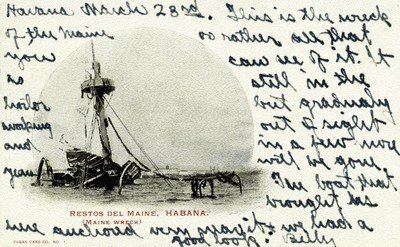 Havana March 28rd. This is the wreck
of the Maine or rather all that
you can see of it. It
is still in the
harbor but gradually
sinking out of sight
and in a few more
years will be gone.
The boat that
brought us
here anchored very near it so we had a
good look.
RESTOS DEL MAINE, HABANA.
(MAINE WRECK)
CUBAN CARD CO. NO. 1